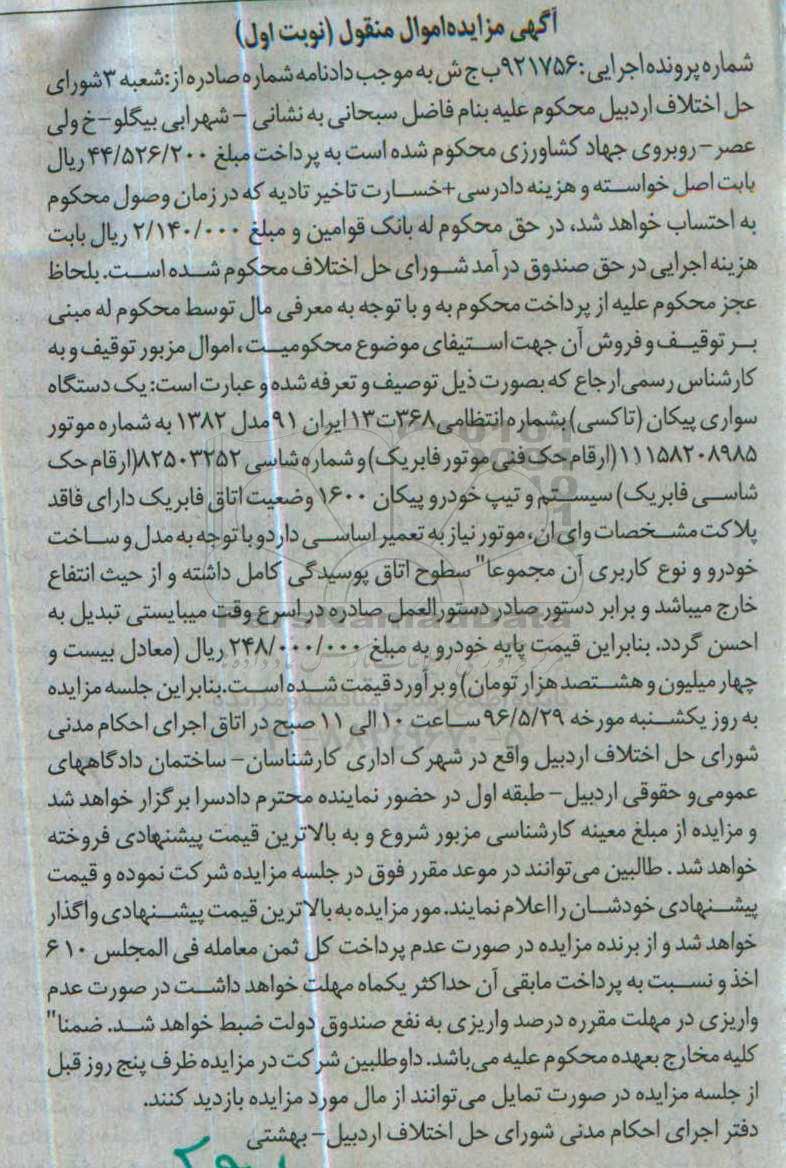 آگهی مزایده اموال منقول (نوبت اول)
شماره پرونده اجرایی: ۹۲۱۷۵۶ب ج ش به موجب دادنامه شماره صادره از: شعبه ۳ شورای
حل اختلاف اردبیل محکوم علیه بنام فاضل سبحانی به نشانی - شهرابی بیگلو-خ ولی
عصر- روبروی جهاد کشاورزی محکوم شده است به پرداخت مبلغ ۴۴/۵۲۶/۲۰۰ ریال
بابت اصل خواسته و هزینه دادرسی+خسارت تاخیر تادیه که در زمان وصول محکوم
به احتساب خواهد شد، در حق محکوم له بانک قوامین و مبلغ ۲/۱۴۰/۰۰۰ ریال بابت
هزینه اجرایی در حق صندوق در آمد شورای حل اختلاف محکوم شده است. بلحاظ
عجز محکوم علیه از پرداخت محکوم به و با توجه به معرفی مال توسط محکوم له مبنی
بر توقیف و فروش آن جهت استیفای موضوع محکومیت، اموال مزبور توقیف و به
کارشناس رسمی ارجاع که بصورت ذیل توصیف و تعرفه شده و عبارت است: یک دستگاه
سواری پیکان (تاکسی) بشماره انتظامی ۳۶۸ت۱۳ ایران ۹۱ مدل ۱۳۸۲ به شماره موتور
۱۱۱۵۸۲۰۸۹۸۵(ارقام حک فنی موتور فابریک) و شماره شاسی ۸۲۵۰۳۲۵۲(ارقام حک
شاسی فابریک) سیستم و تیپ خودرو پیکان ۱۶۰۰ وضعیت اتاق فابریک دارای فاقد
پلاکت مشخصات وای ان، موتور نیاز به تعمیر اساسی دارد و با توجه به مدل و ساخت
خودرو و نوع کاربری آن مجموعا" سطوح اتاق پوسیدگی کامل داشته و از حیث انتفاع
خارج میباشد و برابر دستور صادر دستورالعمل صادره در اسرع وقت میبایستی تبدیل به
احسن گردد. بنابراین قیمت پایه خودرو به مبلغ ۲۴۸/۰۰۰/۰۰۰ ریال (معادل بیست و
چهار میلیون و هشتصد هزار تومان) و برآورد قیمت شده است.بنابراین جلسه مزایده
به روز یکشنبه مورخه ۹۶/۵/۲۹ ساعت ۱۰ الی ۱۱ صبح در اتاق اجرای احکام مدنی
شورای حل اختلاف اردبیل واقع در شهرک اداری کارشناسان- ساختمان دادگاههای
عمومی و حقوقی اردبیل- طبقه اول در حضور نماینده محترم دادسرا برگزار خواهد شد
و مزایده از مبلغ معینه کارشناسی مزبور شروع و به بالاترین قیمت پیشنهادی فروخته
خواهد شد. طالبین می توانند در موعد مقرر فوق در جلسه مزایده شرکت نموده و قیمت
پیشنهادی خودشان را اعلام نمایند. مور مزایده به بالاترین قیمت پیشنهادی واگذار
خواهد شد و از برنده مزایده در صورت عدم پرداخت کل ثمن معامله فی المجلس ۶۱۰
اخذ و نسبت به پرداخت مابقی آن حداکثر یکماه مهلت خواهد داشت در صورت عدم
واریزی در مهلت مقرره درصد واریزی به نفع صندوق دولت ضبط خواهد شد. ضمنا"
کلیه مخارج بعهده محکوم علیه می باشد. داوطلبین شرکت در مزایده ظرف پنج روز قبل
از جلسه مزایده در صورت تمایل می توانند از مال مورد مزایده بازدید کنند.
دفتر اجرای احکام مدنی شورای حل اختلاف اردبیل- بهشتی